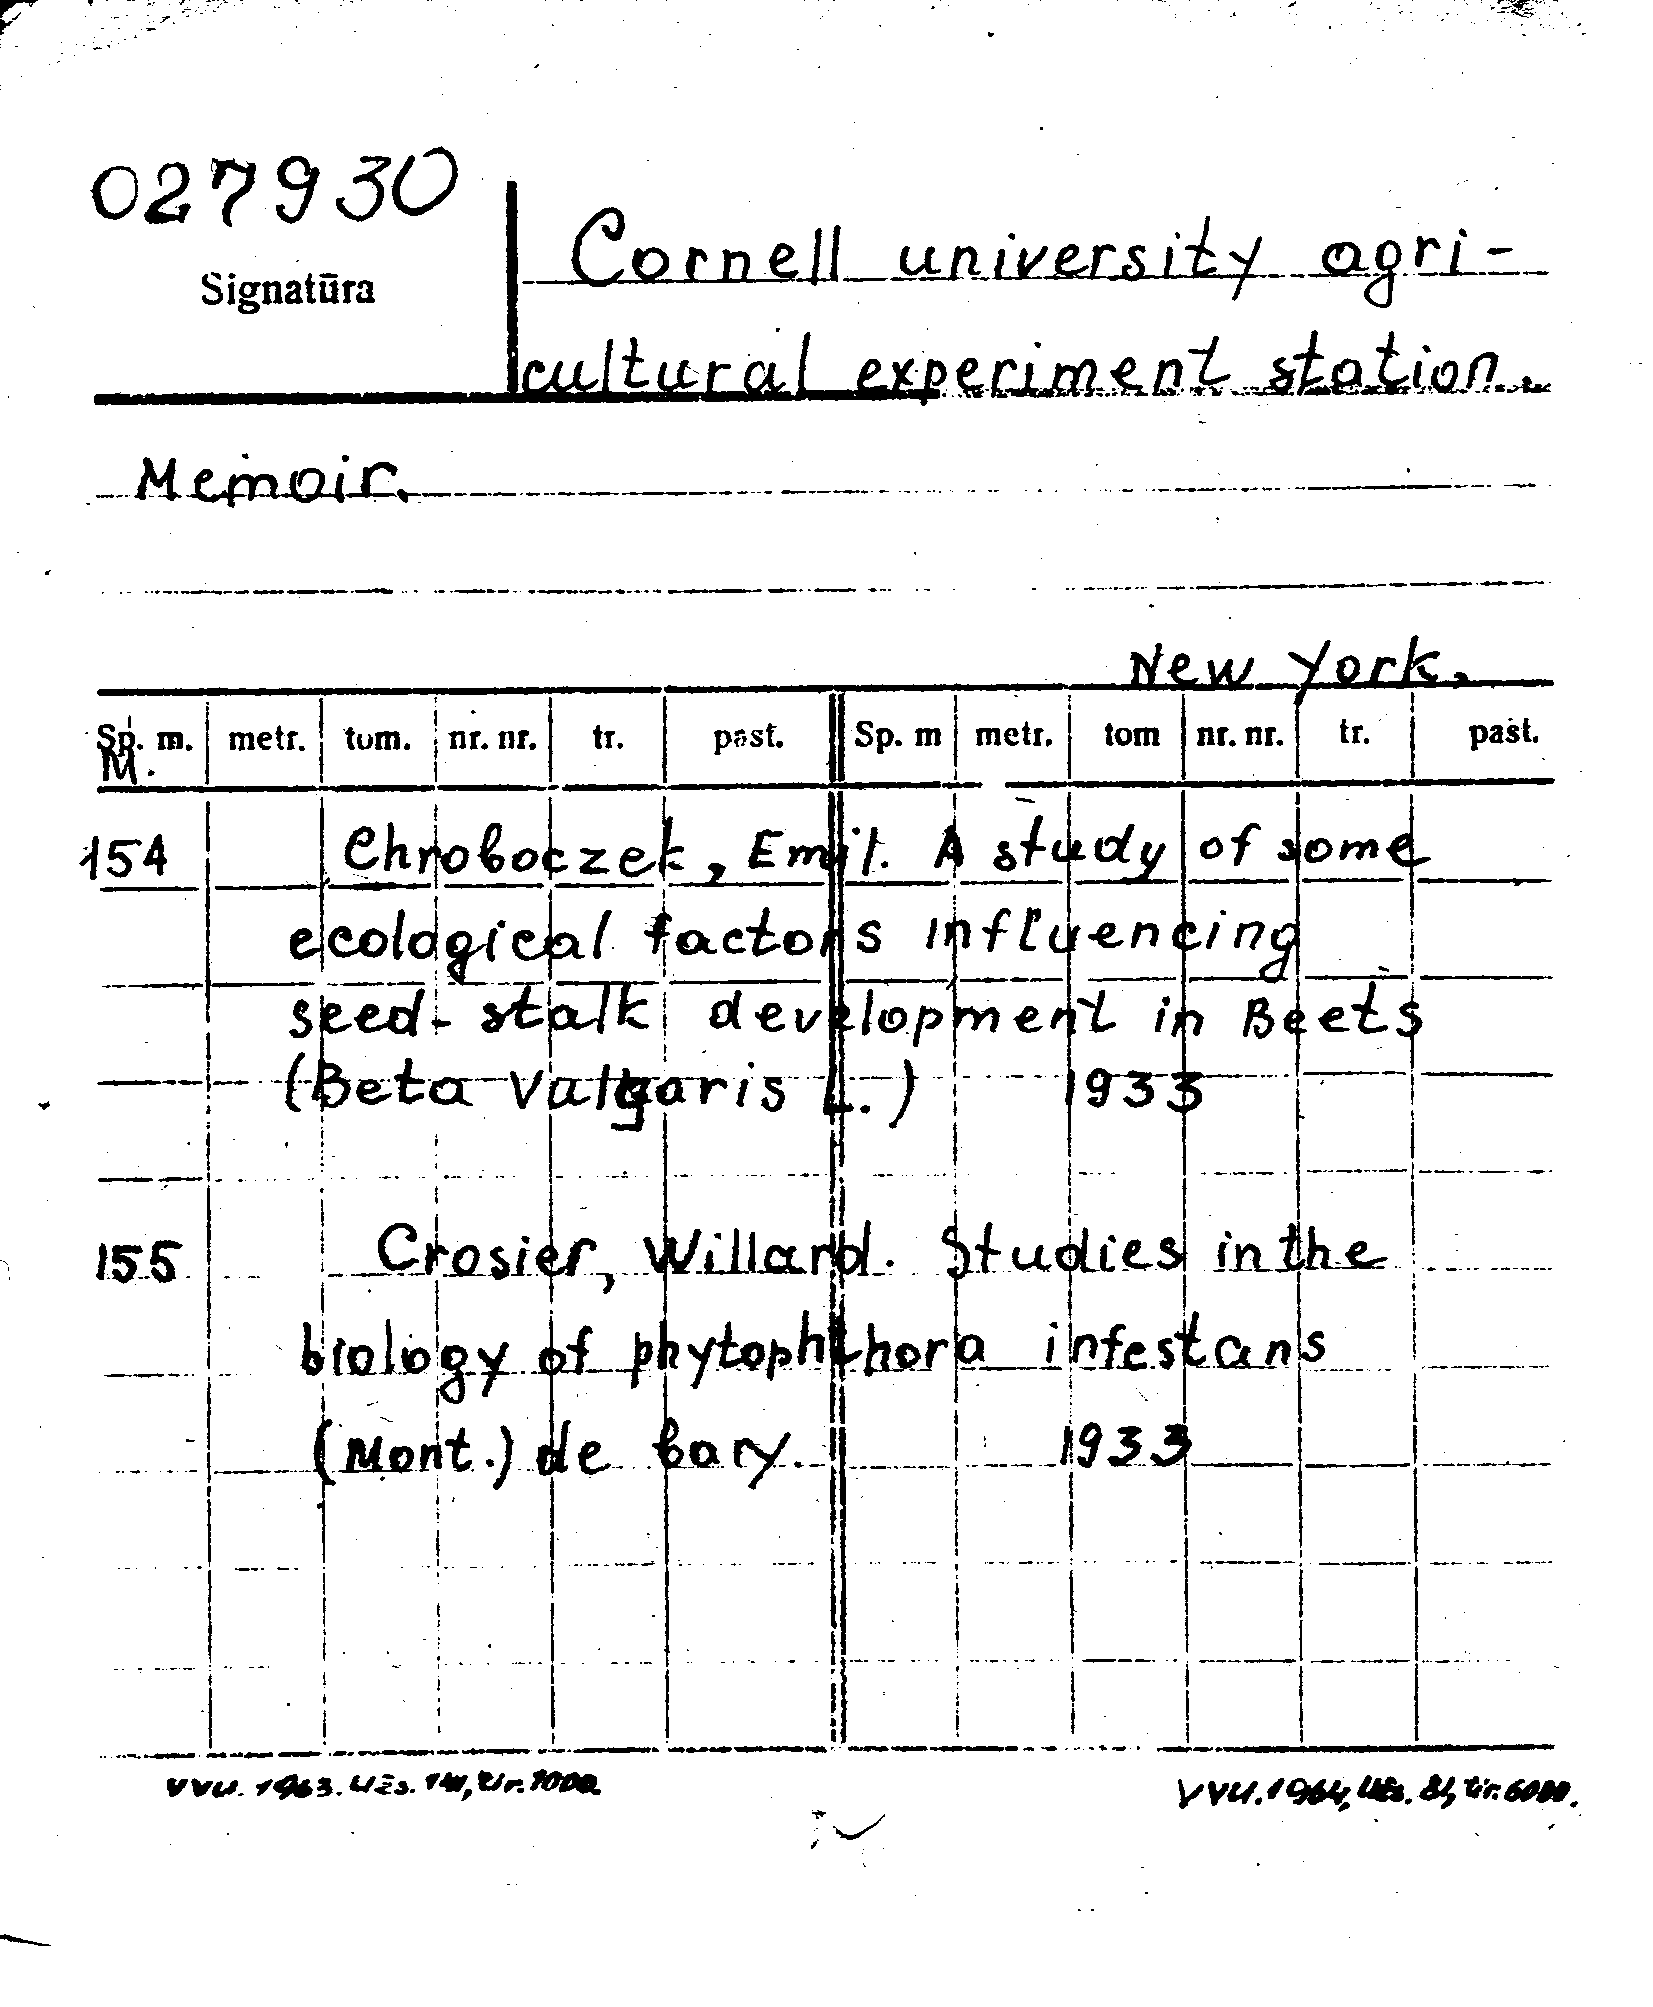 027930
Signatūra
Cornell university agri-
cultural experiment station.
Memoir.
New York,
Sp. m. metr. tom. nr. nr. tr. past. Sp. m metr. tom nr. nr. tr. past.
M.
154 Chroboczek, Emil. A study of some
ecological factors influencing
seed-stalk development in Beets
(Beta Valgaris L.) 1933
155 Crosier, Willard. Studies in the
biology of phytophthora infestans
(Mont.) de bary. 1933
VVU. 1963. Užs. tir. 1000.
VVU. 1964, Užs. 81, tir. 6000.